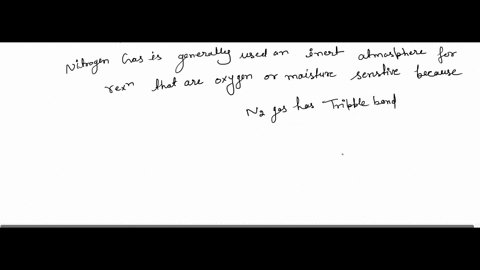 Nitrogen Gas is generally used an inert atmosphere for
rexn that are oxygen or moisture sensitive because
N2 gas has Tripple bond